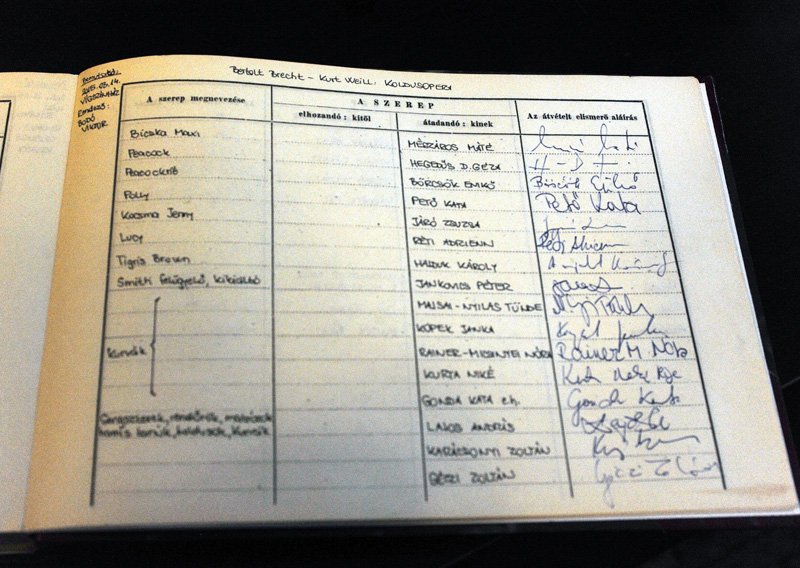 Bemutató:
2015.03.14.
VÍGSZÍNHÁZ
Rendező:
BODÓ
VIKTOR
Bertolt Brecht - Kurt Weill: KOLDUSOPERA
A szerep megnevezése
A SZEREP
elhozandó: kitől
átadandó: kinek
Az átvételt elismerő aláírás
Bicska Maxi MÉSZÁROS MÁTÉ
Peacock HEGEDŰS D. GÉZA
Peacockné BÖRCSÖK ENIKŐ Börcsök Enikő
Polly PETŐ KATA Pető Kata
Kocsma Jenny JÁRÓ ZSUZSA
Lucy RÉTI ADRIENN
Tigris Brown HAJDUK KÁROLY
Smith felügyelő, kikiáltó JANKOVICS PÉTER
MAJSAI-NYILAS TÜNDE
KOPEK JANKA
Kurvák RAINER-MICSINYEI NÓRA Rainer M Nóra
KURTA NIKÉ
GONDA KATA e.h. Gonda Kata
Gengszterek, rendőrök, LAKOS ANDRÁS
koldusok, kurvák KARÁCSONYI ZOLTÁN
GÉCZI ZOLTÁN Géczi Zoltán